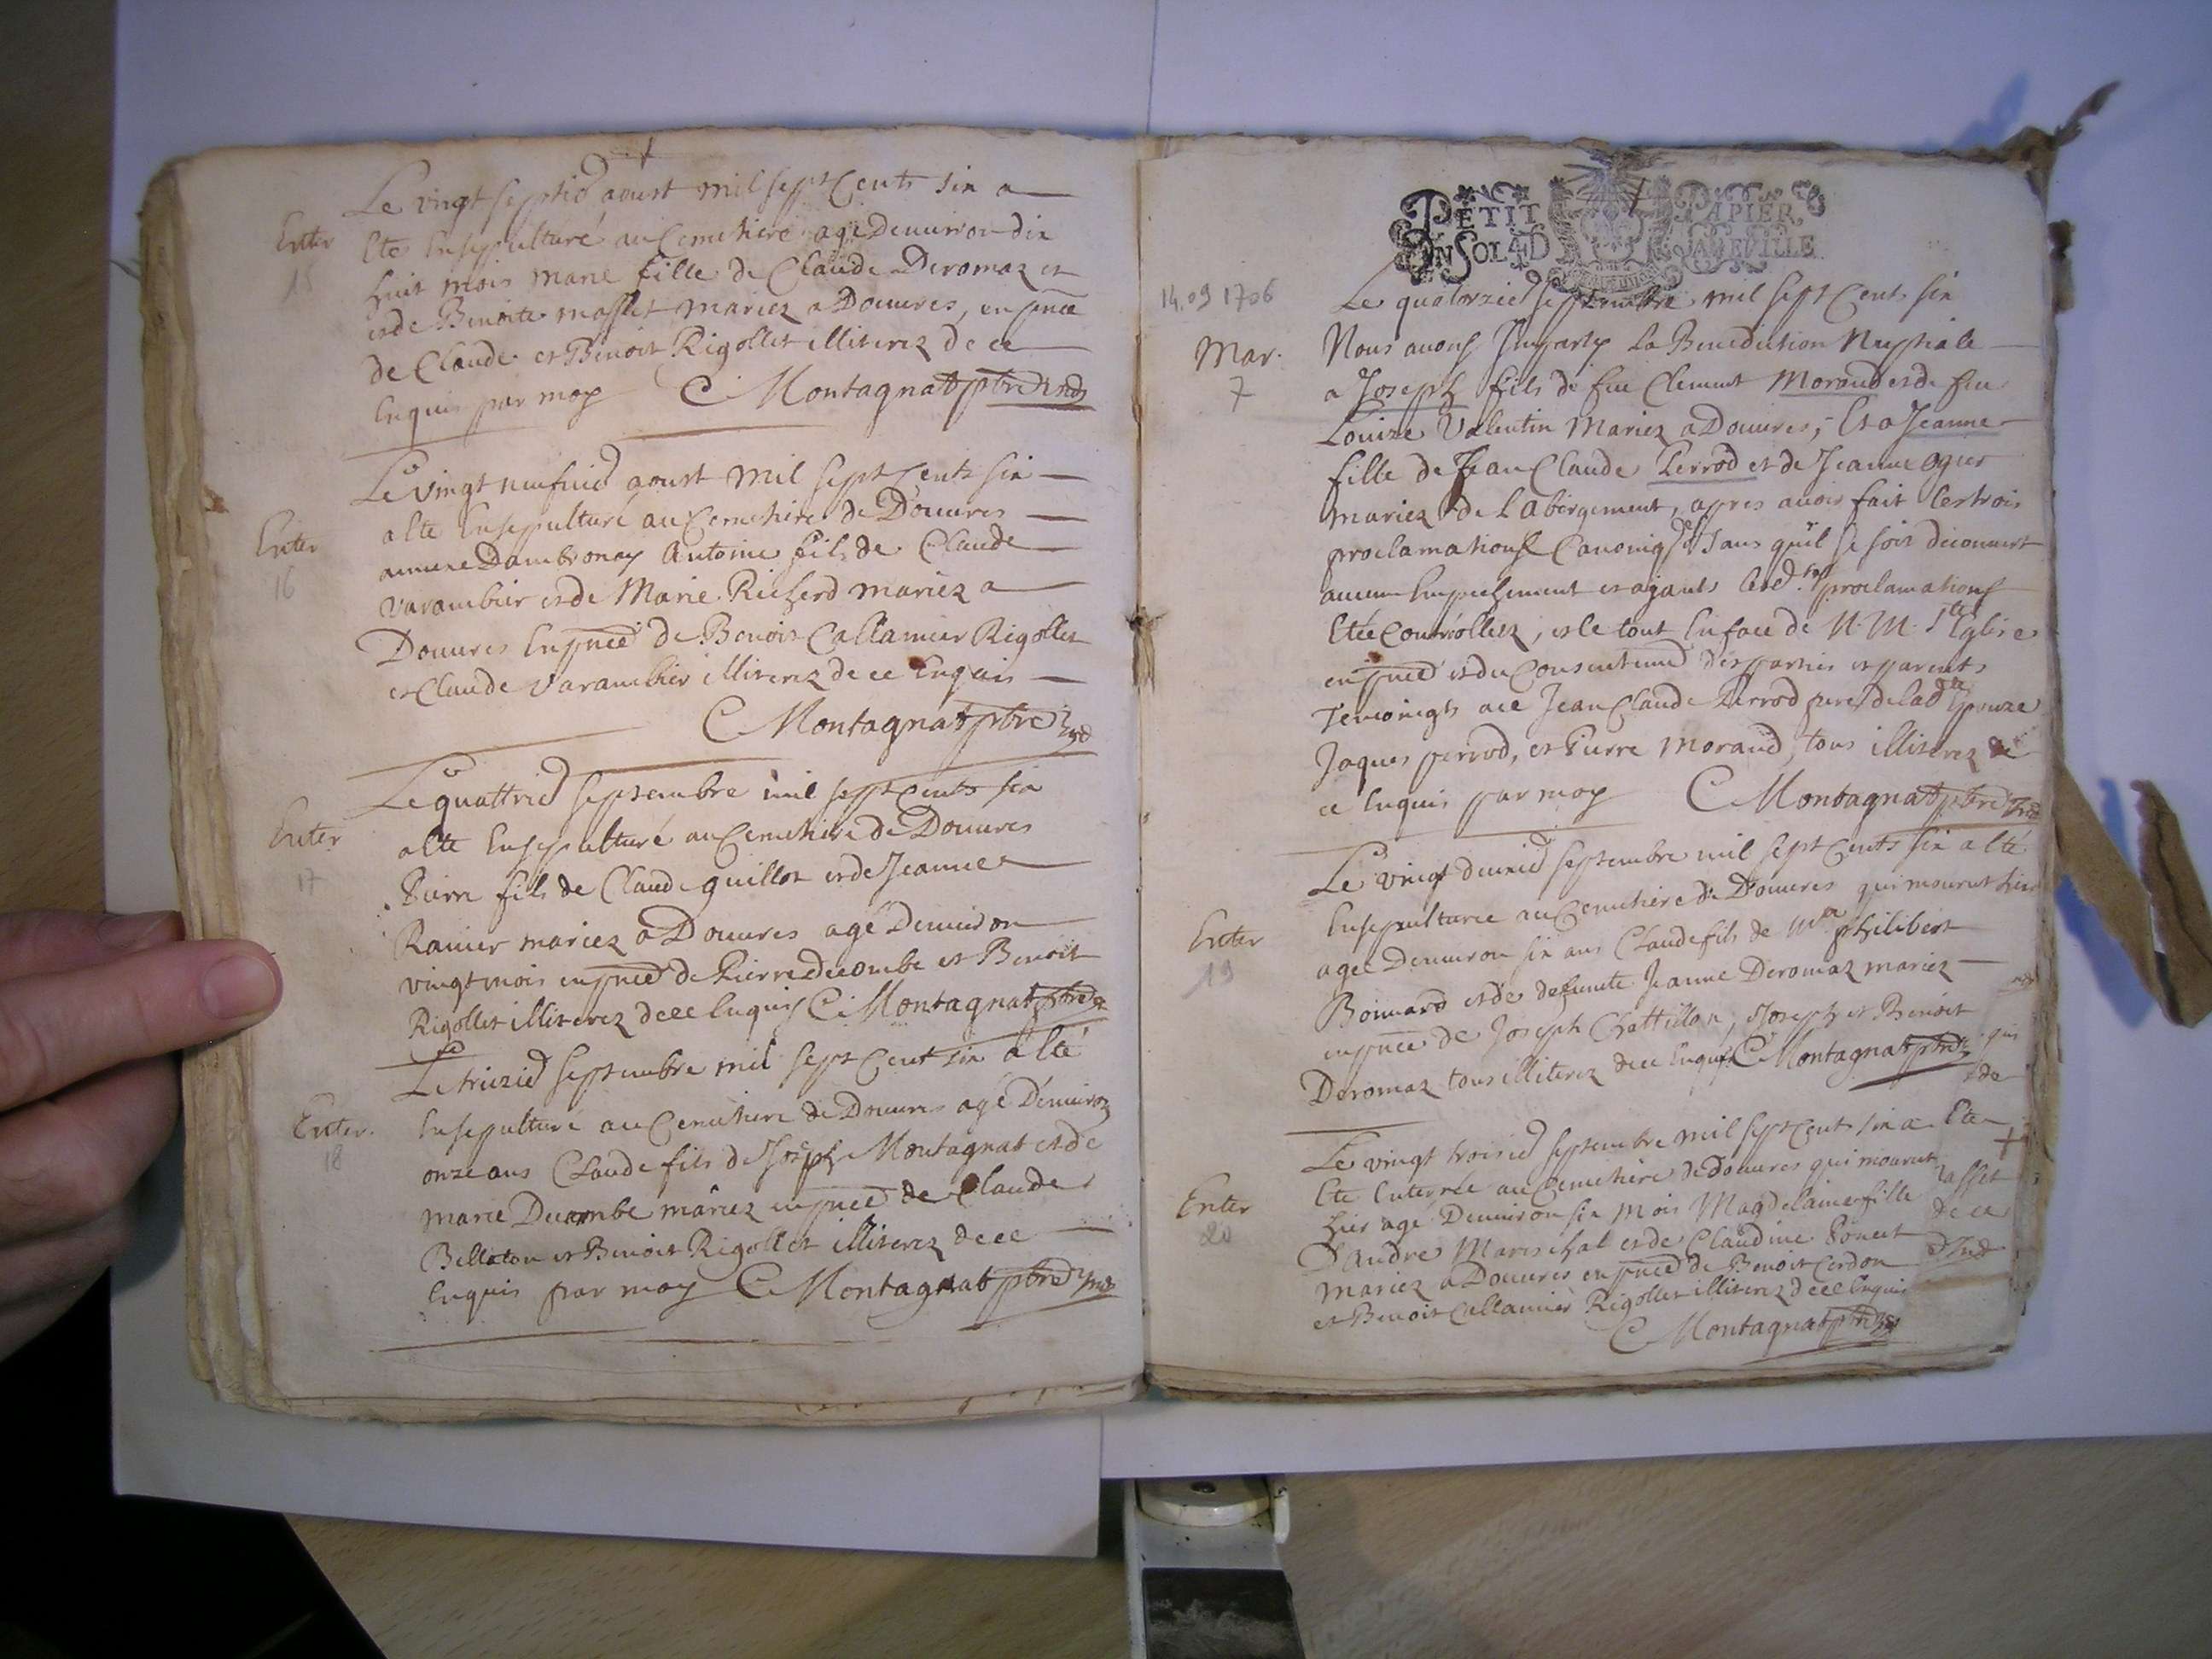 Le vingt septie aoust mil sept Cents six a
Enter
15
Ete Ensepulturé au Cemethiere agé Denuiron dix
huit mois Marie fille de Claude Deromaz et
et de Benoite masset mariez a Douures, en pnce
de Claude et Benoit Rigollet illiterez de ce
Enquis par moy C Montagnat ptre
Le vingt neufuie aoust mil sept Cents six
Enter
16
a Ete Ensepulturé au Cemethiere de Douures
annexe Dambronay Antoine fils de Claude
Varambier et de Marie Richerd mariez a
Douures En pnce de Benoit Callamier Rigollet
et Claude Varambier illiterez de ce Enquis
C Montagnat ptre
Le quattrie septembre mil sept Cents six
Enter
17
a Ete Ensepulturé au Cemethiere de Douures
Pierre fils de Claude guillot et de Jeanne
Ranier mariez a Douures agé Denuiron
vingt mois en pnce de Pierre Decombe et Benoit
Rigollet illiterez de ce Enquis C Montagnat ptre
Le treizie septembre mil sept Cent six a Eté
Enter.
18
Ensepulturé au Cemethiere de Douures agé Denuiron
onze ans Claude fils de Joseph Montagnat et de
Marie Decombe mariez en pnce de Claude
Bellaton et Benoit Rigollet illiterez de ce
Enquis par moy C Montagnat ptre
PETIT PAPIER
UN SOL 4 D LA FEVILLE
14.09 1706
Le quatorzie septembre mil sept Cents six
Mar.
7
Nous auons Imparty La Benediction Nuptiale
a Joseph fils de feu Clement Morand et de feu
Louize Valentin Mariez a Douures, Et a Jeanne
fille de Jean Claude Perrod et de Jeanne ogier
mariez de L'abergement, apres auoir fait les trois
proclamations Canoniqs sans qu'il se soit decouuert
aucun Empechement et ayants lesd. proclamations
Etée Controllez, et le tout En face de N. M. Ste Eglise
en pnce et du Consentemt des parties et parents
Temoings ace Jean Claude Perrod pere de lade Epouze
Jaques perrod, et Pierre Morand, tous illiterez de
ce Enquis par moy C Montagnat ptre
Le vingt deuxie septembre mil sept Cents six a Eté
Enter
19
Ensepulturee au Cemethiere de Douures qui mourut hier
agee Denuiron six ans Claude fils de philibert
Bonnard et de defunte Jeanne Deromaz mariez
en pnce de Joseph Chattillon, Joseph et Benoit
Deromaz tous illiterez de ce Enquis C Montagnat ptre
Le vingt troisie septembre mil sept Cents six a
Enter
20
Ete Enterrée au Cemethiere de Douures qui mourut
hier agé Denuiron six Mois Magdelaine fille
D'andre Mareschal et de Claudine Poncet
mariez a Douures en pnce de Benoit Cerdon
et Benoit Callamier Rigollet illiterez de ce Enquis
C Montagnat ptre
qui
et de
Ete
asset
de ce